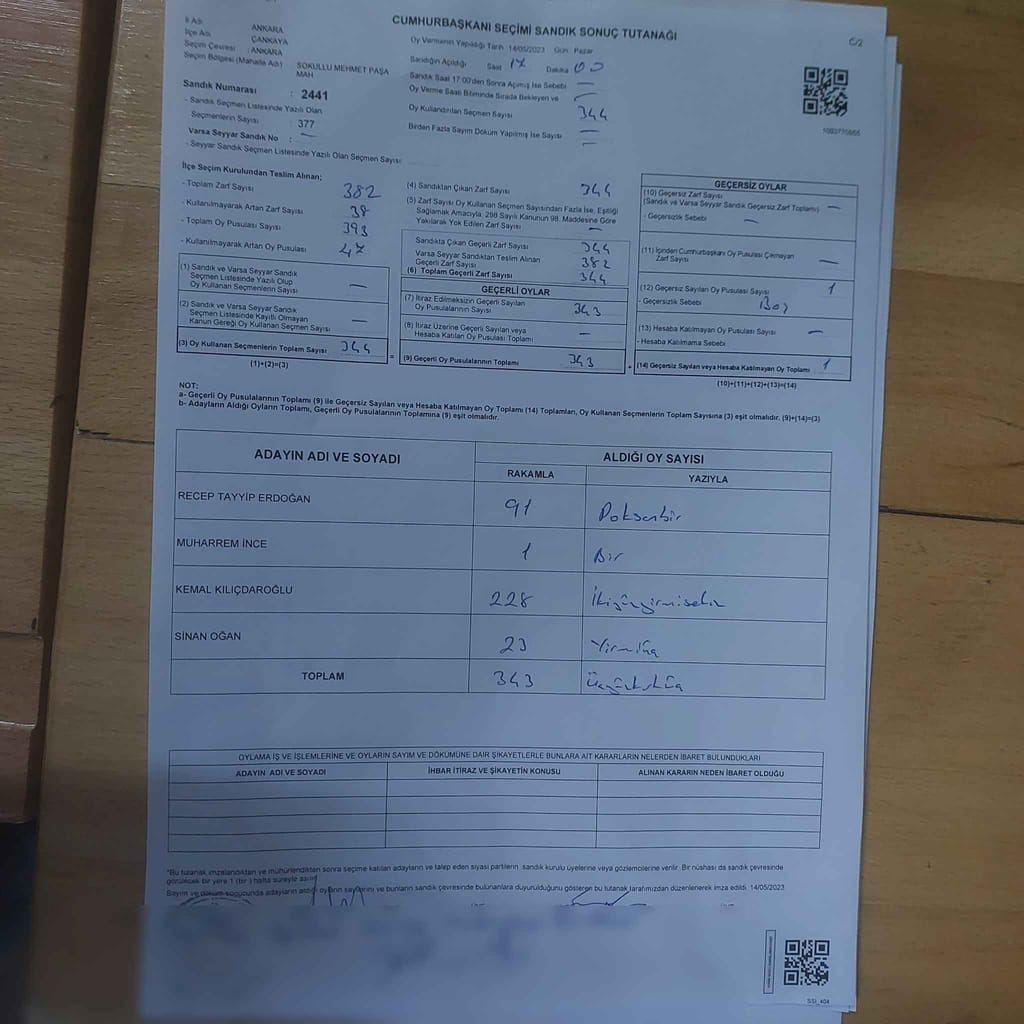 CUMHURBAŞKANI SEÇİMİ SANDIK SONUÇ TUTANAĞI
C/2
İl Adı ANKARA
İlçe Adı ÇANKAYA
Seçim Çevresi : ANKARA
Seçim Bölgesi (Mahalle Adı) SOKULLU MEHMET PAŞA MAH
Oy Vermenin Yapıldığı Tarih 14/05/2023 Gün Pazar
Sandığın Açıldığı Saat 17 Dakika 00
Sandık Saat 17:00'den Sonra Açılmış İse Sebebi —
Oy Verme Saati Bitiminde Sırada Bekleyen ve
Oy Kullandırılan Seçmen Sayısı 344
Birden Fazla Sayım Döküm Yapılmış İse Sayısı —
Sandık Numarası : 2441
- Sandık Seçmen Listesinde Yazılı Olan
Seçmenlerin Sayısı : 377
Varsa Seyyar Sandık No : —
- Seyyar Sandık Seçmen Listesinde Yazılı Olan Seçmen Sayısı
İlçe Seçim Kurulundan Teslim Alınan;
- Toplam Zarf Sayısı 382
- Kullanılmayarak Artan Zarf Sayısı 38
- Toplam Oy Pusulası Sayısı 393
- Kullanılmayarak Artan Oy Pusulası 47
(1) Sandık ve Varsa Seyyar Sandık
Seçmen Listesinde Yazılı Olup
Oy Kullanan Seçmenlerin Sayısı —
(2) Sandık ve Varsa Seyyar Sandık
Seçmen Listesinde Kayıtlı Olmayan
Kanun Gereği Oy Kullanan Seçmen Sayısı —
(3) Oy Kullanan Seçmenlerin Toplam Sayısı 344
(1)+(2)=(3)
(4) Sandıktan Çıkan Zarf Sayısı 344
(5) Zarf Sayısı Oy Kullanan Seçmen Sayısından Fazla İse, Eşitliği
Sağlamak Amacıyla, 298 Sayılı Kanunun 98. Maddesine Göre
Yakılarak Yok Edilen Zarf Sayısı —
Sandıkta Çıkan Geçerli Zarf Sayısı 344
Varsa Seyyar Sandıktan Teslim Alınan
Geçerli Zarf Sayısı 382
(6) Toplam Geçerli Zarf Sayısı 344
GEÇERLİ OYLAR
(7) İtiraz Edilmeksizin Geçerli Sayılan
Oy Pusulalarının Sayısı 343
(8) İtiraz Üzerine Geçerli Sayılan veya
Hesaba Katılan Oy Pusulası Toplamı —
= (9) Geçerli Oy Pusulalarının Toplamı 343
GEÇERSİZ OYLAR
(10) Geçersiz Zarf Sayısı
(Sandık ve Varsa Seyyar Sandık Geçersiz Zarf Toplamı) —
- Geçersizlik Sebebi —
(11) İçinden Cumhurbaşkanı Oy Pusulası Çıkmayan
Zarf Sayısı —
(12) Geçersiz Sayılan Oy Pusulası Sayısı 1
- Geçersizlik Sebebi Boş
(13) Hesaba Katılmayan Oy Pusulası Sayısı —
- Hesaba Katılmama Sebebi
+ (14) Geçersiz Sayılan veya Hesaba Katılmayan Oy Toplamı 1
(10)+(11)+(12)+(13)=(14)
NOT:
a- Geçerli Oy Pusulalarının Toplamı (9) ile Geçersiz Sayılan veya Hesaba Katılmayan Oy Toplamı (14) Toplamları, Oy Kullanan Seçmenlerin Toplam Sayısına (3) eşit olmalıdır. (9)+(14)=(3)
b- Adayların Aldığı Oyların Toplamı, Geçerli Oy Pusulalarının Toplamına (9) eşit olmalıdır.
ADAYIN ADI VE SOYADI ALDIĞI OY SAYISI
RAKAMLA YAZIYLA
RECEP TAYYİP ERDOĞAN 91 Doksanbir
MUHARREM İNCE 1 Bir
KEMAL KILIÇDAROĞLU 228 İkiyüzyirmisekiz
SİNAN OĞAN 23 Yirmiüç
TOPLAM 343 Üçyüzkırküç
OYLAMA İŞ VE İŞLEMLERİNE VE OYLARIN SAYIM VE DÖKÜMÜNE DAİR ŞİKAYETLERLE BUNLARA AİT KARARLARIN NELERDEN İBARET BULUNDUKLARI
ADAYIN ADI VE SOYADI İHBAR İTİRAZ VE ŞİKAYETİN KONUSU ALINAN KARARIN NEDEN İBARET OLDUĞU
*Bu tutanak imzalandıktan ve mühürlendikten sonra seçime katılan adayların ve talep eden siyasi partilerin sandık kurulu üyelerine veya gözlemcilerine verilir. Bir nüshası da sandık çevresinde
görülecek bir yere 1 (bir) hafta süreyle asılır.
Sayım ve döküm sonucunda adayların aldığı oyların sayılarını ve bunların sandık çevresinde bulunanlara duyurulduğunu gösteren bu tutanak tarafımızdan düzenlenerek imza edildi. 14/05/2023